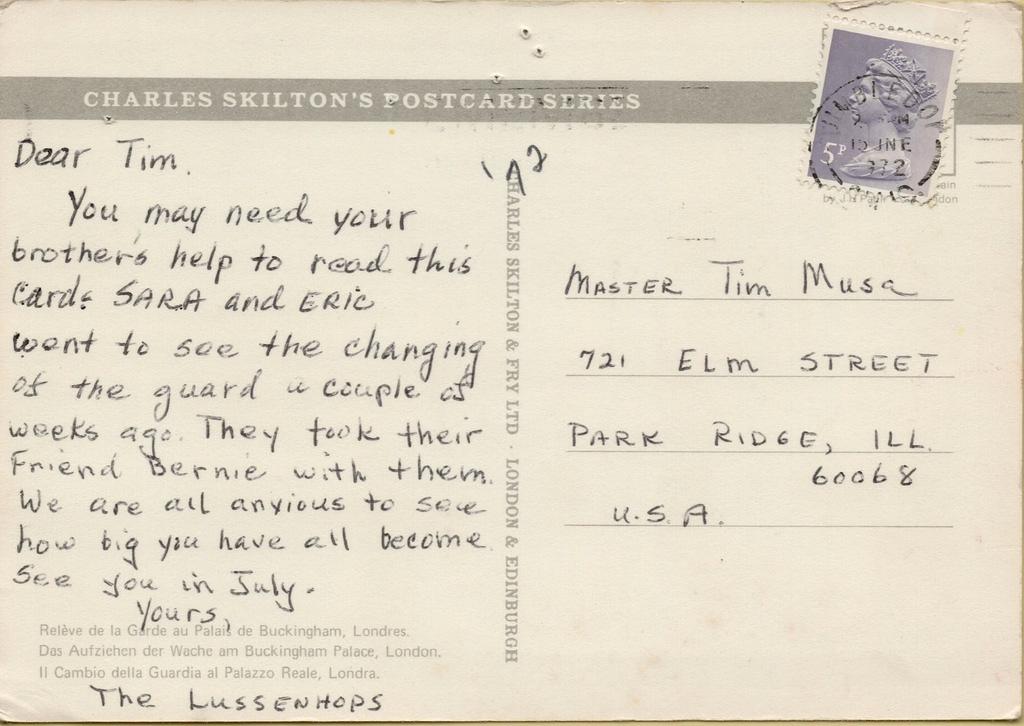 CHARLES SKILTON'S POSTCARD SERIES
Dear Tim.
You may need your
brother's help to read this
card. SARA and ERIC
went to see the changing
of the guard a couple of
weeks ago. They took their
Friend Bernie with them.
We are all anxious to see
how big you have all become.
See you in July.
Yours,
Relève de la Garde au Palais de Buckingham, Londres.
Das Aufziehen der Wache am Buckingham Palace, London.
Il Cambio della Guardia al Palazzo Reale, Londra.
The LUSSENHOPS
CHARLES SKILTON & FRY LTD · LONDON & EDINBURGH
5P
15 JNE
MASTER Tim Musa
721 ELM STREET
PARK RIDGE, ILL.
60068
U.S.A.